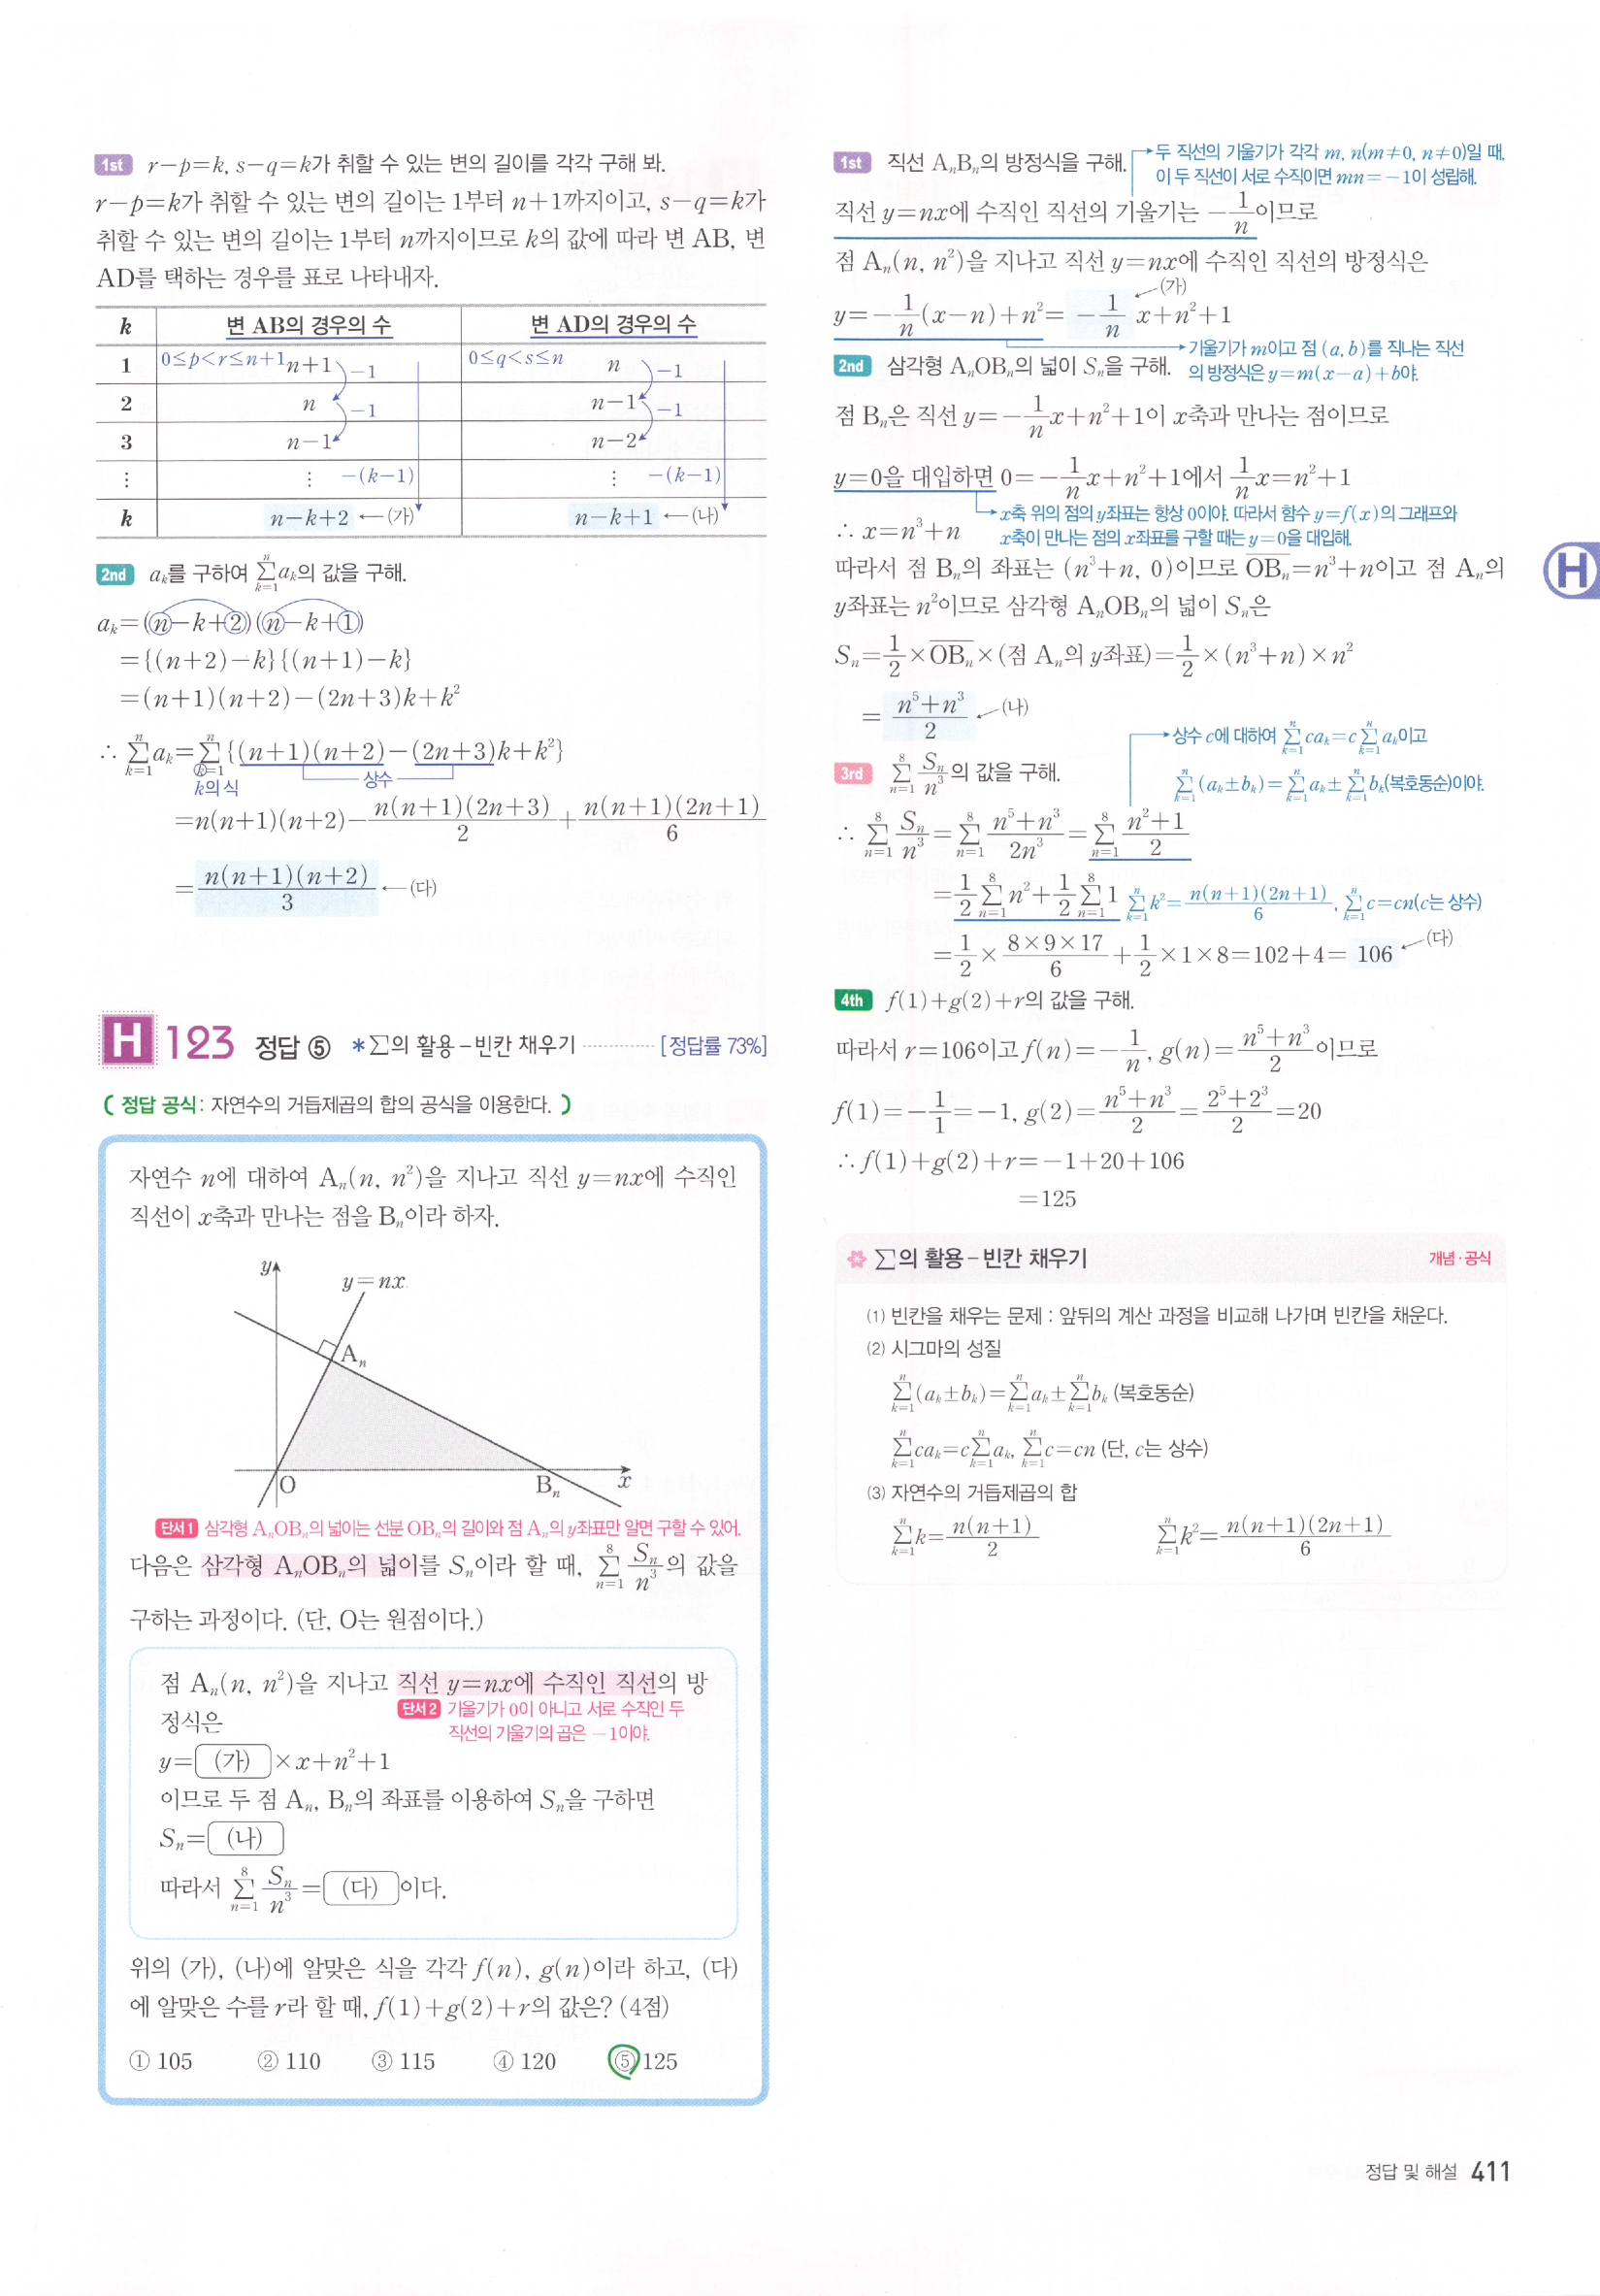 1st r−p=k, s−q=k가 취할 수 있는 변의 길이를 각각 구해 봐.
r−p=k가 취할 수 있는 변의 길이는 1부터 n+1까지이고, s−q=k가
취할 수 있는 변의 길이는 1부터 n까지이므로 k의 값에 따라 변 AB, 변
AD를 택하는 경우를 표로 나타내자.
k 변 AB의 경우의 수 변 AD의 경우의 수
1 0≤p<r≤n+1 n+1 −1 0≤q<s≤n n −1
2 n −1 n−1 −1
3 n−1 n−2
⋮ ⋮ −(k−1) ⋮ −(k−1)
k n−k+2 ←(가) n−k+1 ←(나)
2nd aₖ를 구하여 ∑_{k=1}^{n} aₖ의 값을 구해.
aₖ=(n−k+2)(n−k+1)
={(n+2)−k}{(n+1)−k}
=(n+1)(n+2)−(2n+3)k+k²
∴ ∑_{k=1}^{n} aₖ=∑_{k=1}^{n} {(n+1)(n+2)−(2n+3)k+k²}
k의 식 상수
=n(n+1)(n+2)−n(n+1)(2n+3)/2+n(n+1)(2n+1)/6
=n(n+1)(n+2)/3 ←(다)
H 123 정답 ⑤ *∑의 활용−빈칸 채우기 ············ [정답률 73%]
( 정답 공식: 자연수의 거듭제곱의 합의 공식을 이용한다. )
자연수 n에 대하여 Aₙ(n, n²)을 지나고 직선 y=nx에 수직인
직선이 x축과 만나는 점을 Bₙ이라 하자.
y
y=nx
Aₙ
O Bₙ x
단서1 삼각형 AₙOBₙ의 넓이는 선분 OBₙ의 길이와 점 Aₙ의 y좌표만 알면 구할 수 있어.
다음은 삼각형 AₙOBₙ의 넓이를 Sₙ이라 할 때, ∑_{n=1}^{8} Sₙ/n³의 값을
구하는 과정이다. (단, O는 원점이다.)
점 Aₙ(n, n²)을 지나고 직선 y=nx에 수직인 직선의 방
정식은
단서2 기울기가 0이 아니고 서로 수직인 두
직선의 기울기의 곱은 −1이야.
y= (가) ×x+n²+1
이므로 두 점 Aₙ, Bₙ의 좌표를 이용하여 Sₙ을 구하면
Sₙ= (나)
따라서 ∑_{n=1}^{8} Sₙ/n³= (다) 이다.
위의 (가), (나)에 알맞은 식을 각각 f(n), g(n)이라 하고, (다)
에 알맞은 수를 r라 할 때, f(1)+g(2)+r의 값은? (4점)
① 105 ② 110 ③ 115 ④ 120 ⑤ 125
1st 직선 AₙBₙ의 방정식을 구해.
두 직선의 기울기가 각각 m, n(m≠0, n≠0)일 때,
이 두 직선이 서로 수직이면 mn=−1이 성립해.
직선 y=nx에 수직인 직선의 기울기는 −1/n이므로
점 Aₙ(n, n²)을 지나고 직선 y=nx에 수직인 직선의 방정식은
y=−1/n(x−n)+n²= −1/n x+n²+1 (가)
기울기가 m이고 점 (a, b)를 지나는 직선
의 방정식은 y=m(x−a)+b야.
2nd 삼각형 AₙOBₙ의 넓이 Sₙ을 구해.
점 Bₙ은 직선 y=−1/n x+n²+1이 x축과 만나는 점이므로
y=0을 대입하면 0=−1/n x+n²+1에서 1/n x=n²+1
x축 위의 점의 y좌표는 항상 0이야. 따라서 함수 y=f(x)의 그래프와
x축이 만나는 점의 x좌표를 구할 때는 y=0을 대입해.
∴ x=n³+n
따라서 점 Bₙ의 좌표는 (n³+n, 0)이므로 OBₙ=n³+n이고 점 Aₙ의
y좌표는 n²이므로 삼각형 AₙOBₙ의 넓이 Sₙ은
Sₙ=1/2×OBₙ×(점 Aₙ의 y좌표)=1/2×(n³+n)×n²
= (n⁵+n³)/2 (나)
3rd ∑_{n=1}^{8} Sₙ/n³의 값을 구해.
상수 c에 대하여 ∑_{k=1}^{n} caₖ=c∑_{k=1}^{n} aₖ이고
∑_{k=1}^{n} (aₖ±bₖ)=∑_{k=1}^{n} aₖ±∑_{k=1}^{n} bₖ(복호동순)이야.
∴ ∑_{n=1}^{8} Sₙ/n³=∑_{n=1}^{8} (n⁵+n³)/2n³=∑_{n=1}^{8} (n²+1)/2
=1/2∑_{n=1}^{8} n²+1/2∑_{n=1}^{8} 1 ∑_{k=1}^{n} k²=n(n+1)(2n+1)/6, ∑_{k=1}^{n} c=cn(c는 상수)
=1/2×(8×9×17)/6+1/2×1×8=102+4= 106 (다)
4th f(1)+g(2)+r의 값을 구해.
따라서 r=106이고 f(n)=−1/n, g(n)=(n⁵+n³)/2이므로
f(1)=−1/1=−1, g(2)=(n⁵+n³)/2=(2⁵+2³)/2=20
∴ f(1)+g(2)+r=−1+20+106
=125
∑의 활용−빈칸 채우기 개념·공식
(1) 빈칸을 채우는 문제 : 앞뒤의 계산 과정을 비교해 나가며 빈칸을 채운다.
(2) 시그마의 성질
∑_{k=1}^{n} (aₖ±bₖ)=∑_{k=1}^{n} aₖ±∑_{k=1}^{n} bₖ (복호동순)
∑_{k=1}^{n} caₖ=c∑_{k=1}^{n} aₖ, ∑_{k=1}^{n} c=cn (단, c는 상수)
(3) 자연수의 거듭제곱의 합
∑_{k=1}^{n} k=n(n+1)/2 ∑_{k=1}^{n} k²=n(n+1)(2n+1)/6
H
정답 및 해설 411